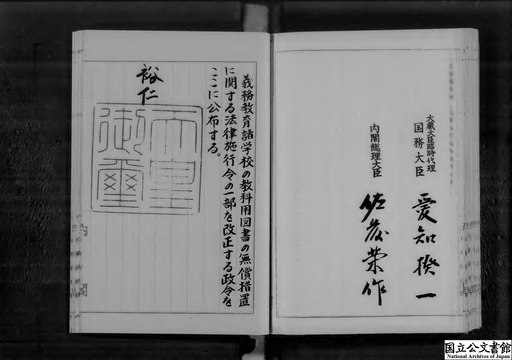 義務教育諸学校の教科用図書の無償措置
に関する法律施行令の一部を改正する政令を
ここに公布する。
裕仁
天皇
御璽
大蔵大臣臨時代理
国務大臣 愛知揆一
内閣総理大臣 佐藤榮作
国立公文書館
National Archives of Japan